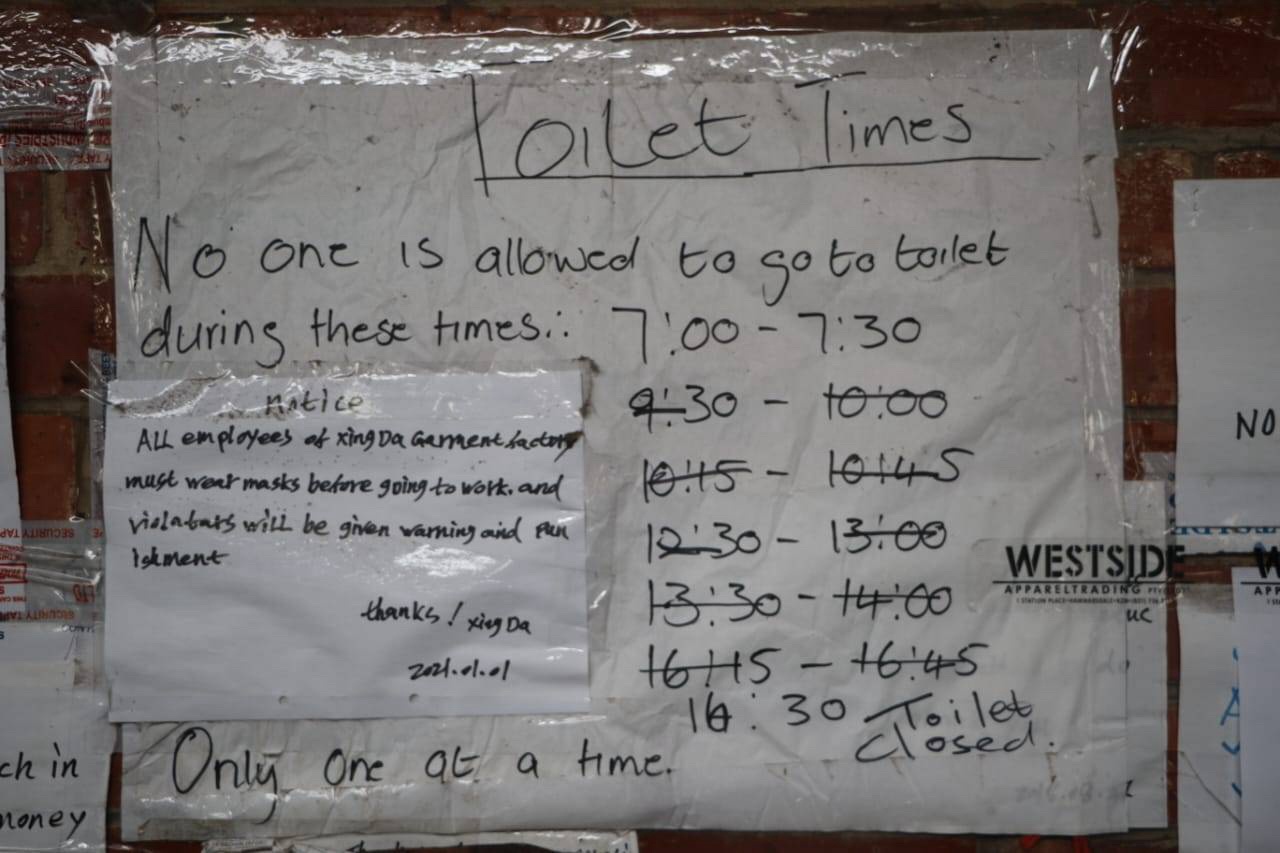 Toilet Times
No one is allowed to go to toilet
during these times: 7:00 - 7:30
9:30 - 10:00
10:15 - 10:45
12:30 - 13:00
13:30 - 14:00
16:15 - 16:45
16:30 Toilet
closed.
Only one at a time.
notice
ALL employees of xing Da Garment factory
must wear masks before going to work. and
violators will be given warning and pun
ishment
thanks! xing Da
2021.01.01
WESTSIDE
APPARELTRADING
NO
ch in
money
SECURITY TAPE